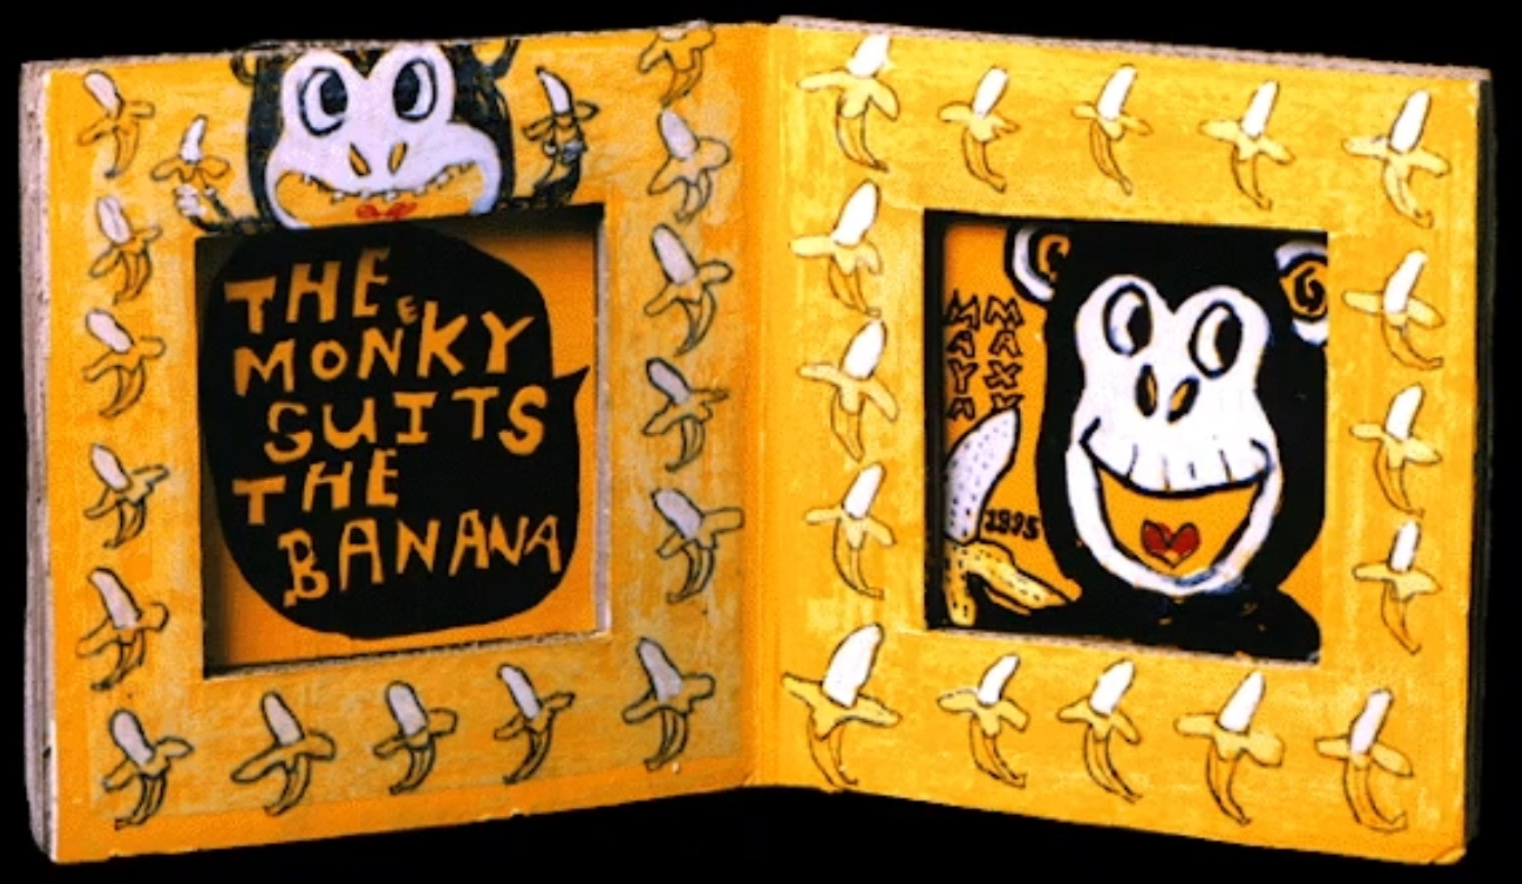 THE
MONEKY
SUITS
THE
BANANA
MAYA
1995